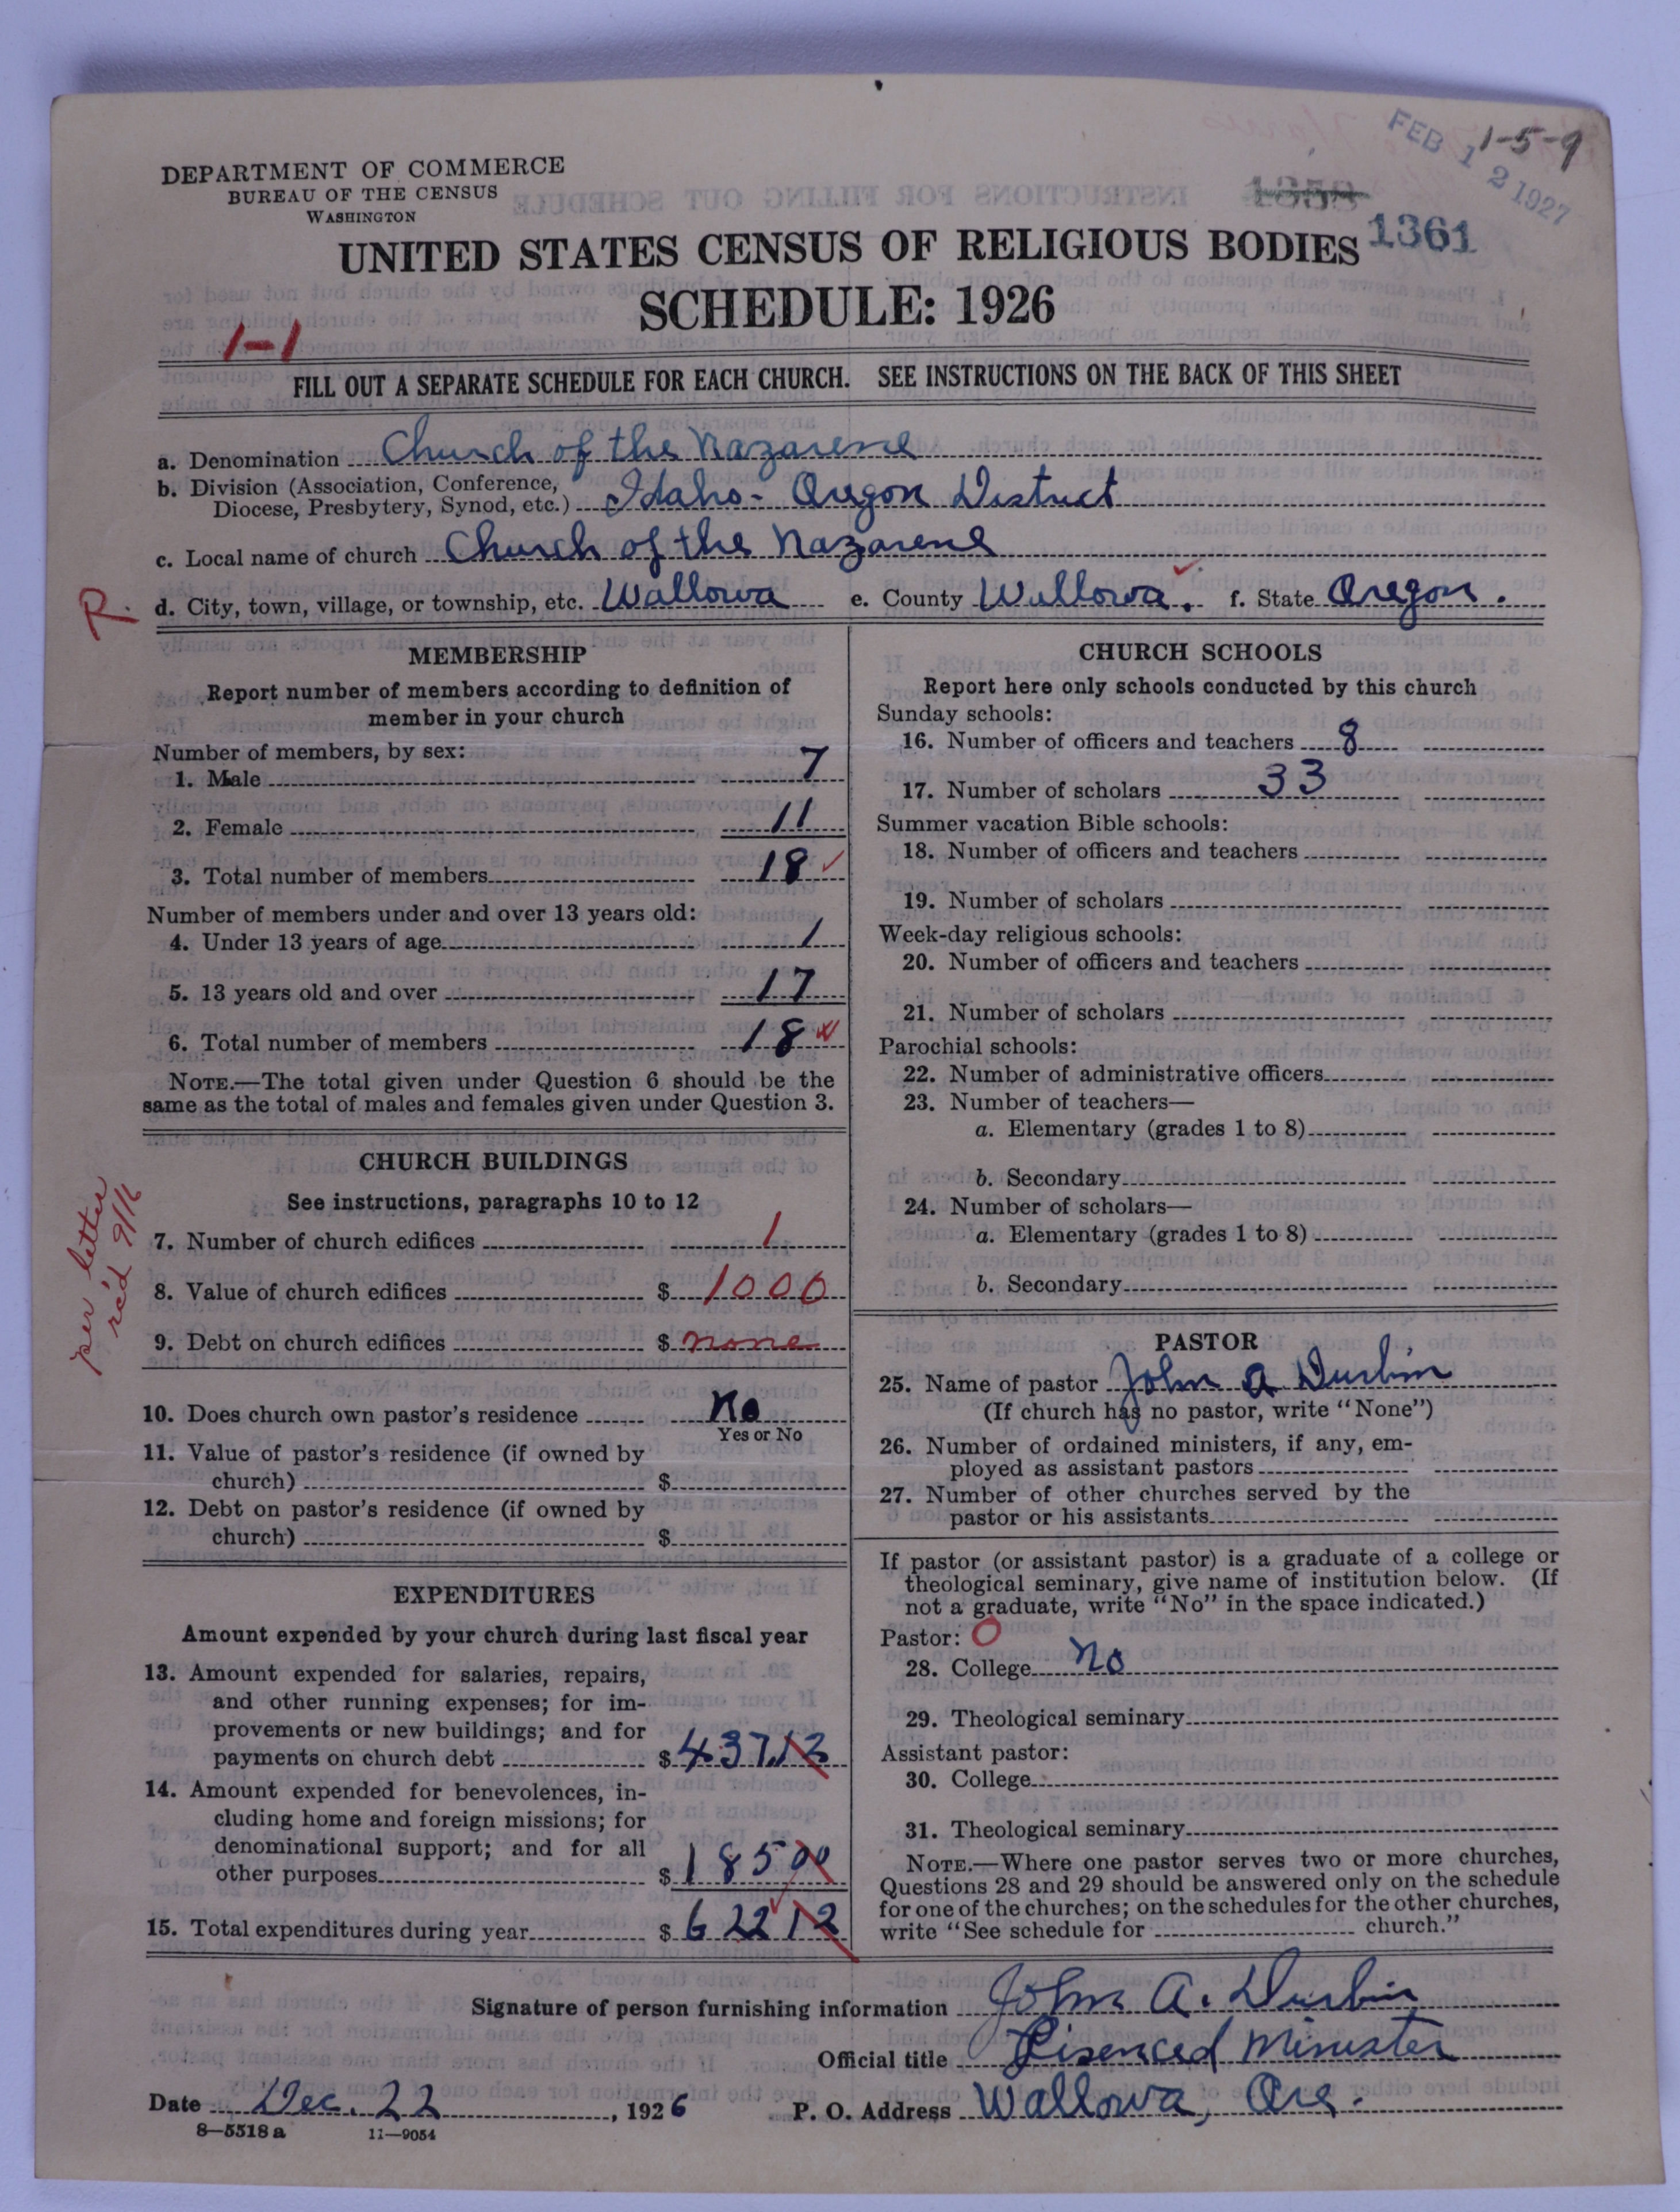 FEB 12 1927
1-5-9
DEPARTMENT OF COMMERCE
BUREAU OF THE CENSUS
WASHINGTON
1361
UNITED STATES CENSUS OF RELIGIOUS BODIES
SCHEDULE: 1926
1-1
FILL OUT A SEPARATE SCHEDULE FOR EACH CHURCH. SEE INSTRUCTIONS ON THE BACK OF THIS SHEET
a. Denomination Church of the Nazarene
b. Division (Association, Conference,
Diocese, Presbytery, Synod, etc.) Idaho-Oregon District
c. Local name of church Church of the Nazarene
R. d. City, town, village, or township, etc. Wallowa e. County Wallowa. f. State Oregon.
MEMBERSHIP
Report number of members according to definition of
member in your church
Number of members, by sex:
1. Male 7
2. Female 11
3. Total number of members 18
Number of members under and over 13 years old:
4. Under 13 years of age 1
5. 13 years old and over 17
6. Total number of members 18
NOTE.—The total given under Question 6 should be the
same as the total of males and females given under Question 3.
CHURCH BUILDINGS
See instructions, paragraphs 10 to 12
per letter
rec'd 9/16
7. Number of church edifices 1
8. Value of church edifices $ 1000
9. Debt on church edifices $ none
10. Does church own pastor's residence No
Yes or No
11. Value of pastor's residence (if owned by
church) $
12. Debt on pastor's residence (if owned by
church) $
EXPENDITURES
Amount expended by your church during last fiscal year
13. Amount expended for salaries, repairs,
and other running expenses; for im-
provements or new buildings; and for
payments on church debt $ 437.12
14. Amount expended for benevolences, in-
cluding home and foreign missions; for
denominational support; and for all
other purposes $ 185 00
15. Total expenditures during year $ 622 12
CHURCH SCHOOLS
Report here only schools conducted by this church
Sunday schools:
16. Number of officers and teachers 8
17. Number of scholars 33
Summer vacation Bible schools:
18. Number of officers and teachers
19. Number of scholars
Week-day religious schools:
20. Number of officers and teachers
21. Number of scholars
Parochial schools:
22. Number of administrative officers
23. Number of teachers—
a. Elementary (grades 1 to 8)
b. Secondary
24. Number of scholars—
a. Elementary (grades 1 to 8)
b. Secondary
PASTOR
25. Name of pastor John A Durbin
(If church has no pastor, write "None")
26. Number of ordained ministers, if any, em-
ployed as assistant pastors
27. Number of other churches served by the
pastor or his assistants
If pastor (or assistant pastor) is a graduate of a college or
theological seminary, give name of institution below. (If
not a graduate, write "No" in the space indicated.)
Pastor: O
28. College No
29. Theological seminary
Assistant pastor:
30. College
31. Theological seminary
NOTE.—Where one pastor serves two or more churches,
Questions 28 and 29 should be answered only on the schedule
for one of the churches; on the schedules for the other churches,
write "See schedule for church."
Signature of person furnishing information John A. Durbin
Official title Lisenced Minister
Date Dec. 22, 1926 P. O. Address Wallowa, Ore.
8—5518 a 11—9054